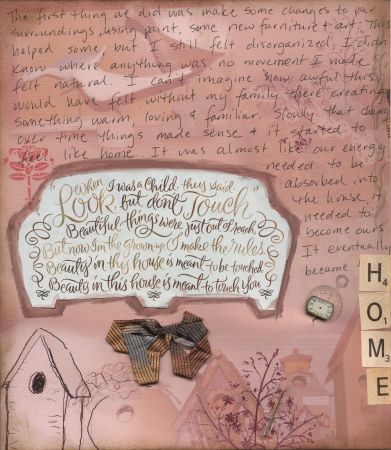 The first thing we did was make some changes to our
surroundings, using paint, some new furniture & art. This
helped some but I still felt disorganized, I didn't
know where anything was, no movement I made
felt natural. I can't imagine how awful this
would have felt without my family there creating
something warm, loving & familiar. Slowly that changed
over time things made sense & it started to
feel like home. It was almost like our energy
needed to be
absorbed into
the house, it
needed to
become ours
It eventually
became
When I was a child, they said
Look but don't Touch
Beautiful things were just out of reach
But now I'm the grownup, I make the rules
Beauty in this house is meant to be touched
Beauty in this house is meant to touch You
H4
O1
M3
E